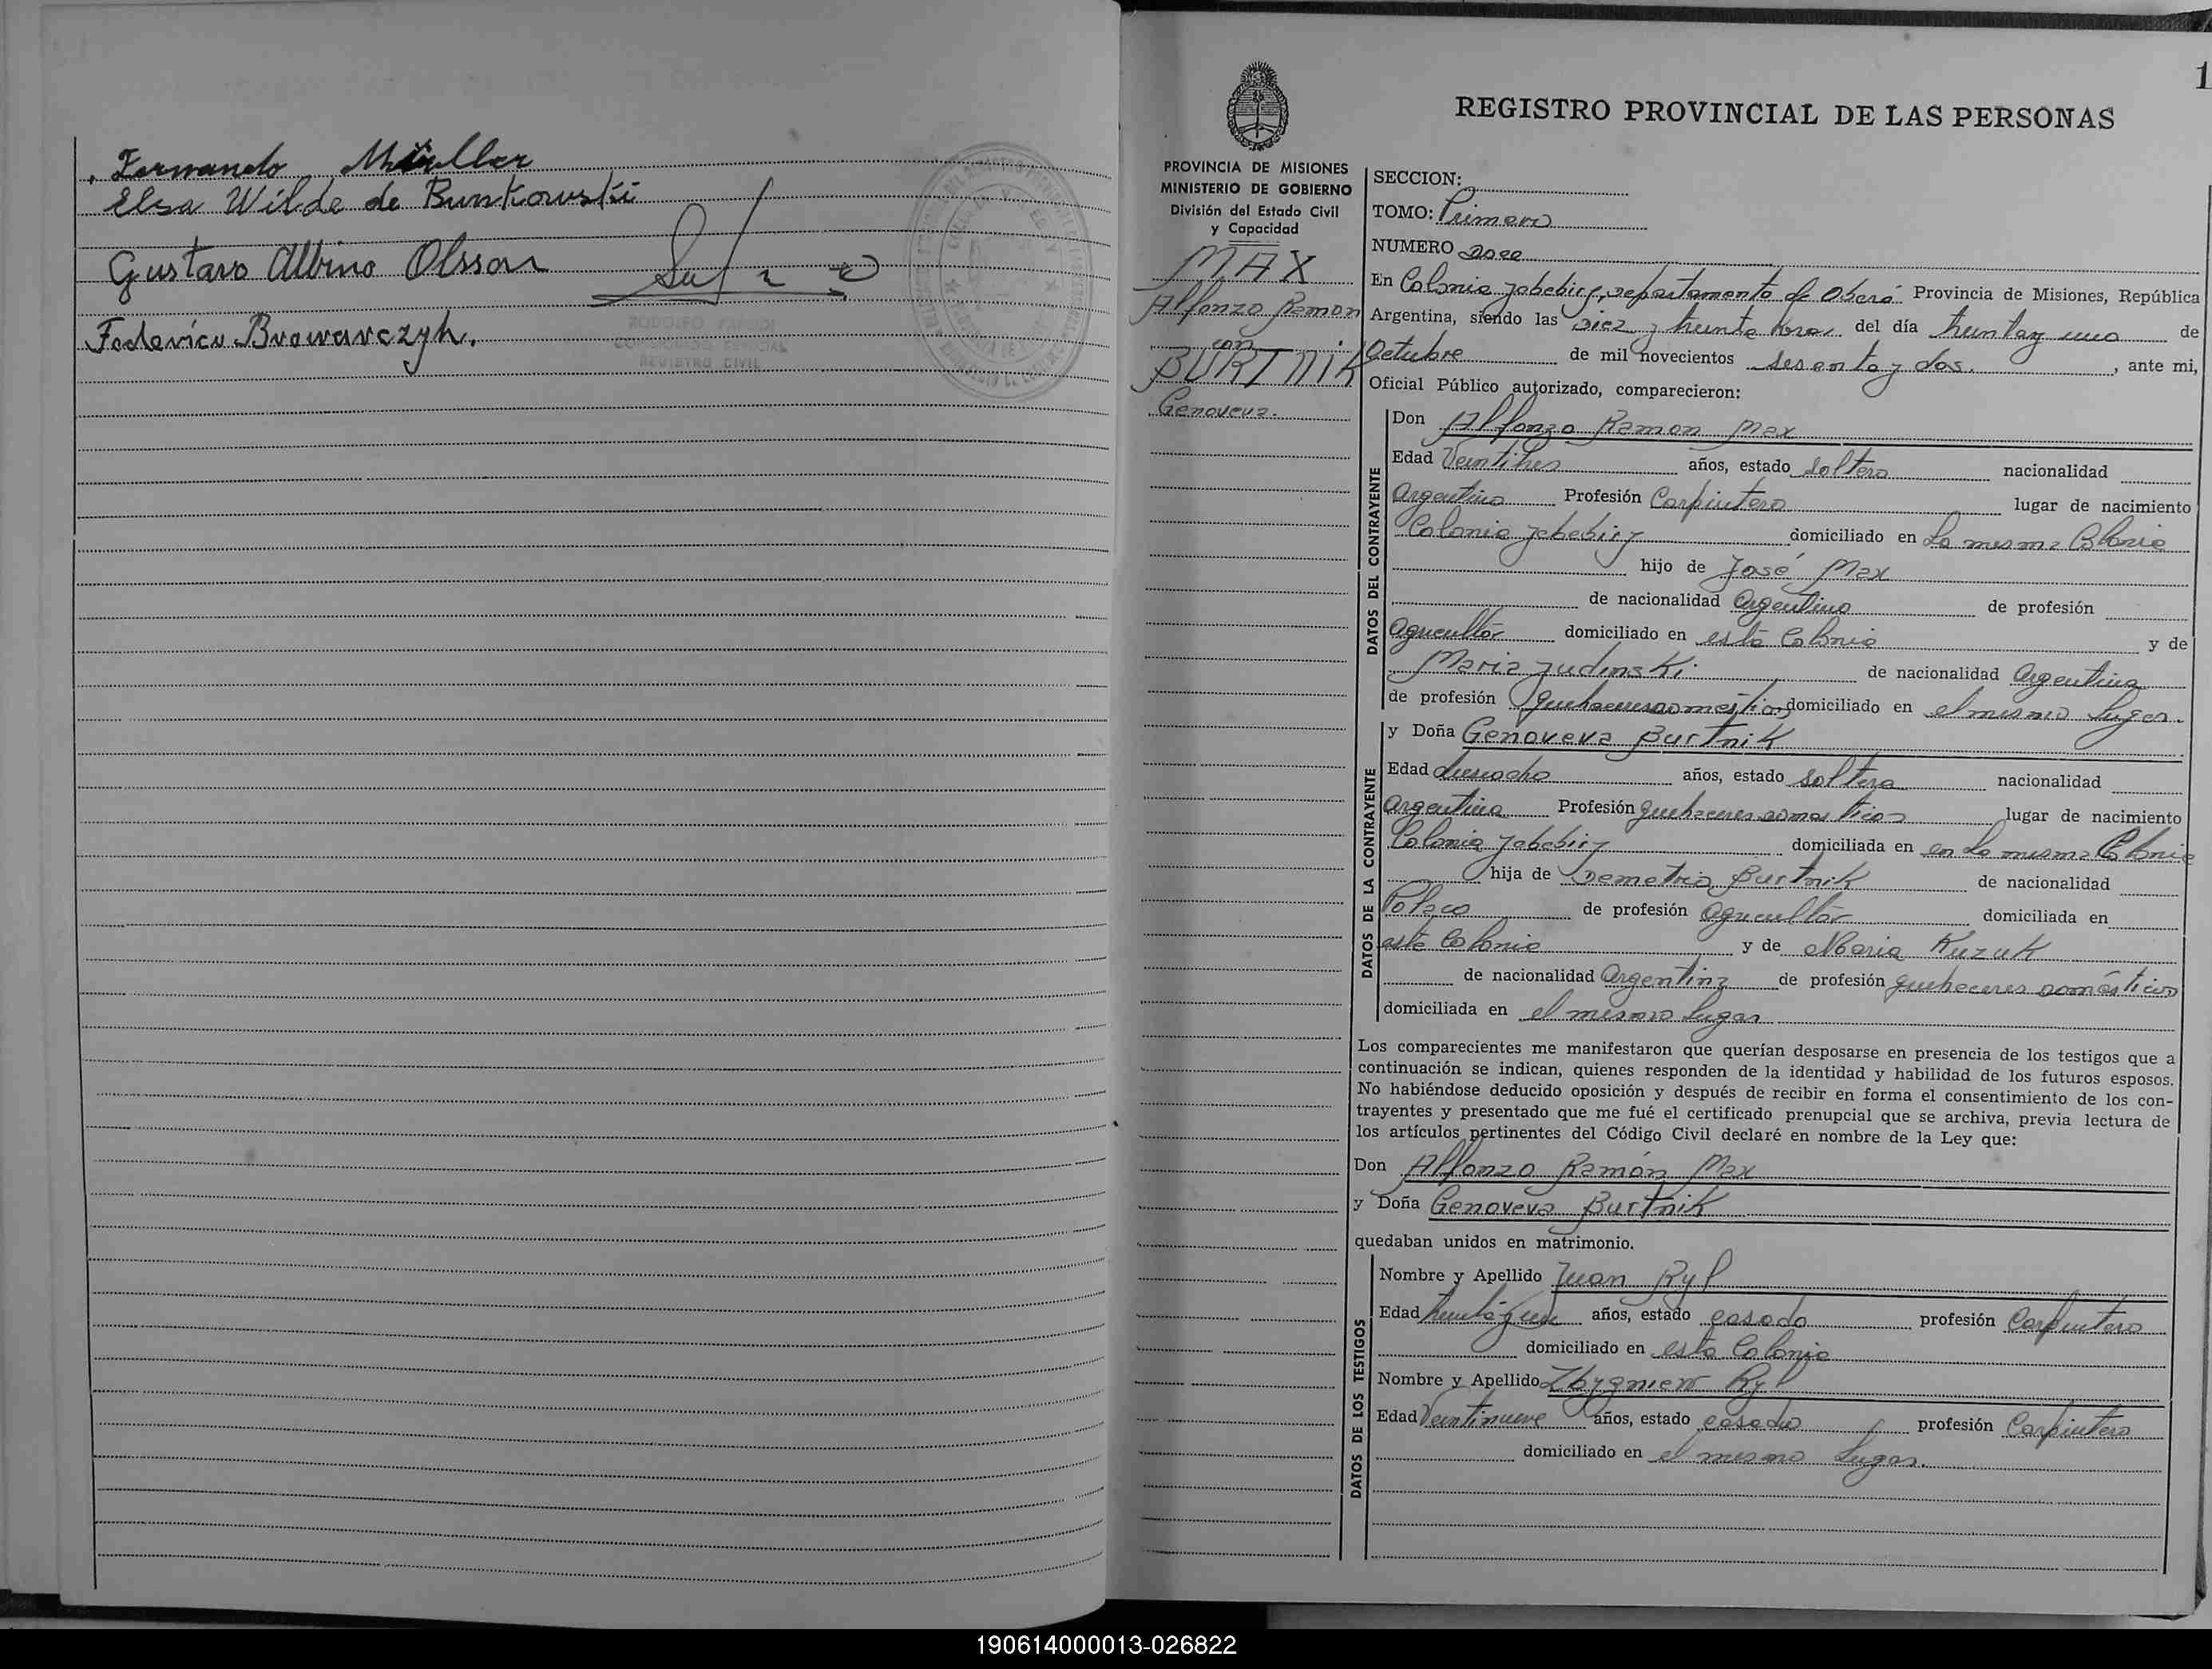 Fernando Müller
Elsa Wilde de Buntkowski
Gustavo Albino Olsson
Federico Browarczyk.
REGISTRO CIVIL
1
REGISTRO PROVINCIAL DE LAS PERSONAS
PROVINCIA DE MISIONES
MINISTERIO DE GOBIERNO
División del Estado Civil
y Capacidad
MAX
Alfonzo Ramon
con
BURTNIK
Genoveva.
SECCION:
TOMO: Primero
NUMERO Doce
En Colonia Yabebiry, Departamento de Oberá Provincia de Misiones, República
Argentina, siendo las diez y treinta horas del día treinta y uno de
Octubre de mil novecientos sesenta y dos. , ante mi,
Oficial Público autorizado, comparecieron:
DATOS DEL CONTRAYENTE
Don Alfonzo Ramon Max
Edad Veintitres años, estado soltero nacionalidad
argentino Profesión Carpintero lugar de nacimiento
Colonia Yabebiry domiciliado en La misma Colonia
hijo de José Max
de nacionalidad Argentino de profesión
agricultor domiciliado en esta Colonia y de
Maria Yudinski de nacionalidad Argentina
de profesión quehaceres domésticos domiciliado en el mismo lugar.
DATOS DE LA CONTRAYENTE
y Doña Genoveva Burtnik
Edad dieciocho años, estado soltera nacionalidad
argentina Profesión quehaceres domesticos lugar de nacimiento
Colonia Yabebiry domiciliada en en la misma Colonia
hija de Demetrio Burtnik de nacionalidad
Polaco de profesión agricultor domiciliada en
esta Colonia y de Maria Kuzuk
de nacionalidad Argentina de profesión quehaceres domésticos
domiciliada en el mismo lugar
Los comparecientes me manifestaron que querían desposarse en presencia de los testigos que a
continuación se indican, quienes responden de la identidad y habilidad de los futuros esposos.
No habiéndose deducido oposición y después de recibir en forma el consentimiento de los con-
trayentes y presentado que me fué el certificado prenupcial que se archiva, previa lectura de
los artículos pertinentes del Código Civil declaré en nombre de la Ley que:
Don Alfonzo Ramón Max
y Doña Genoveva Burtnik
quedaban unidos en matrimonio.
DATOS DE LOS TESTIGOS
Nombre y Apellido Juan Ryl
Edad años, estado casado profesión Carpintero
domiciliado en esta Colonia
Nombre y Apellido Zbygniew Ryl
Edad Veintinueve años, estado casado profesión Carpintero
domiciliado en el mismo lugar.
190614000013-026822